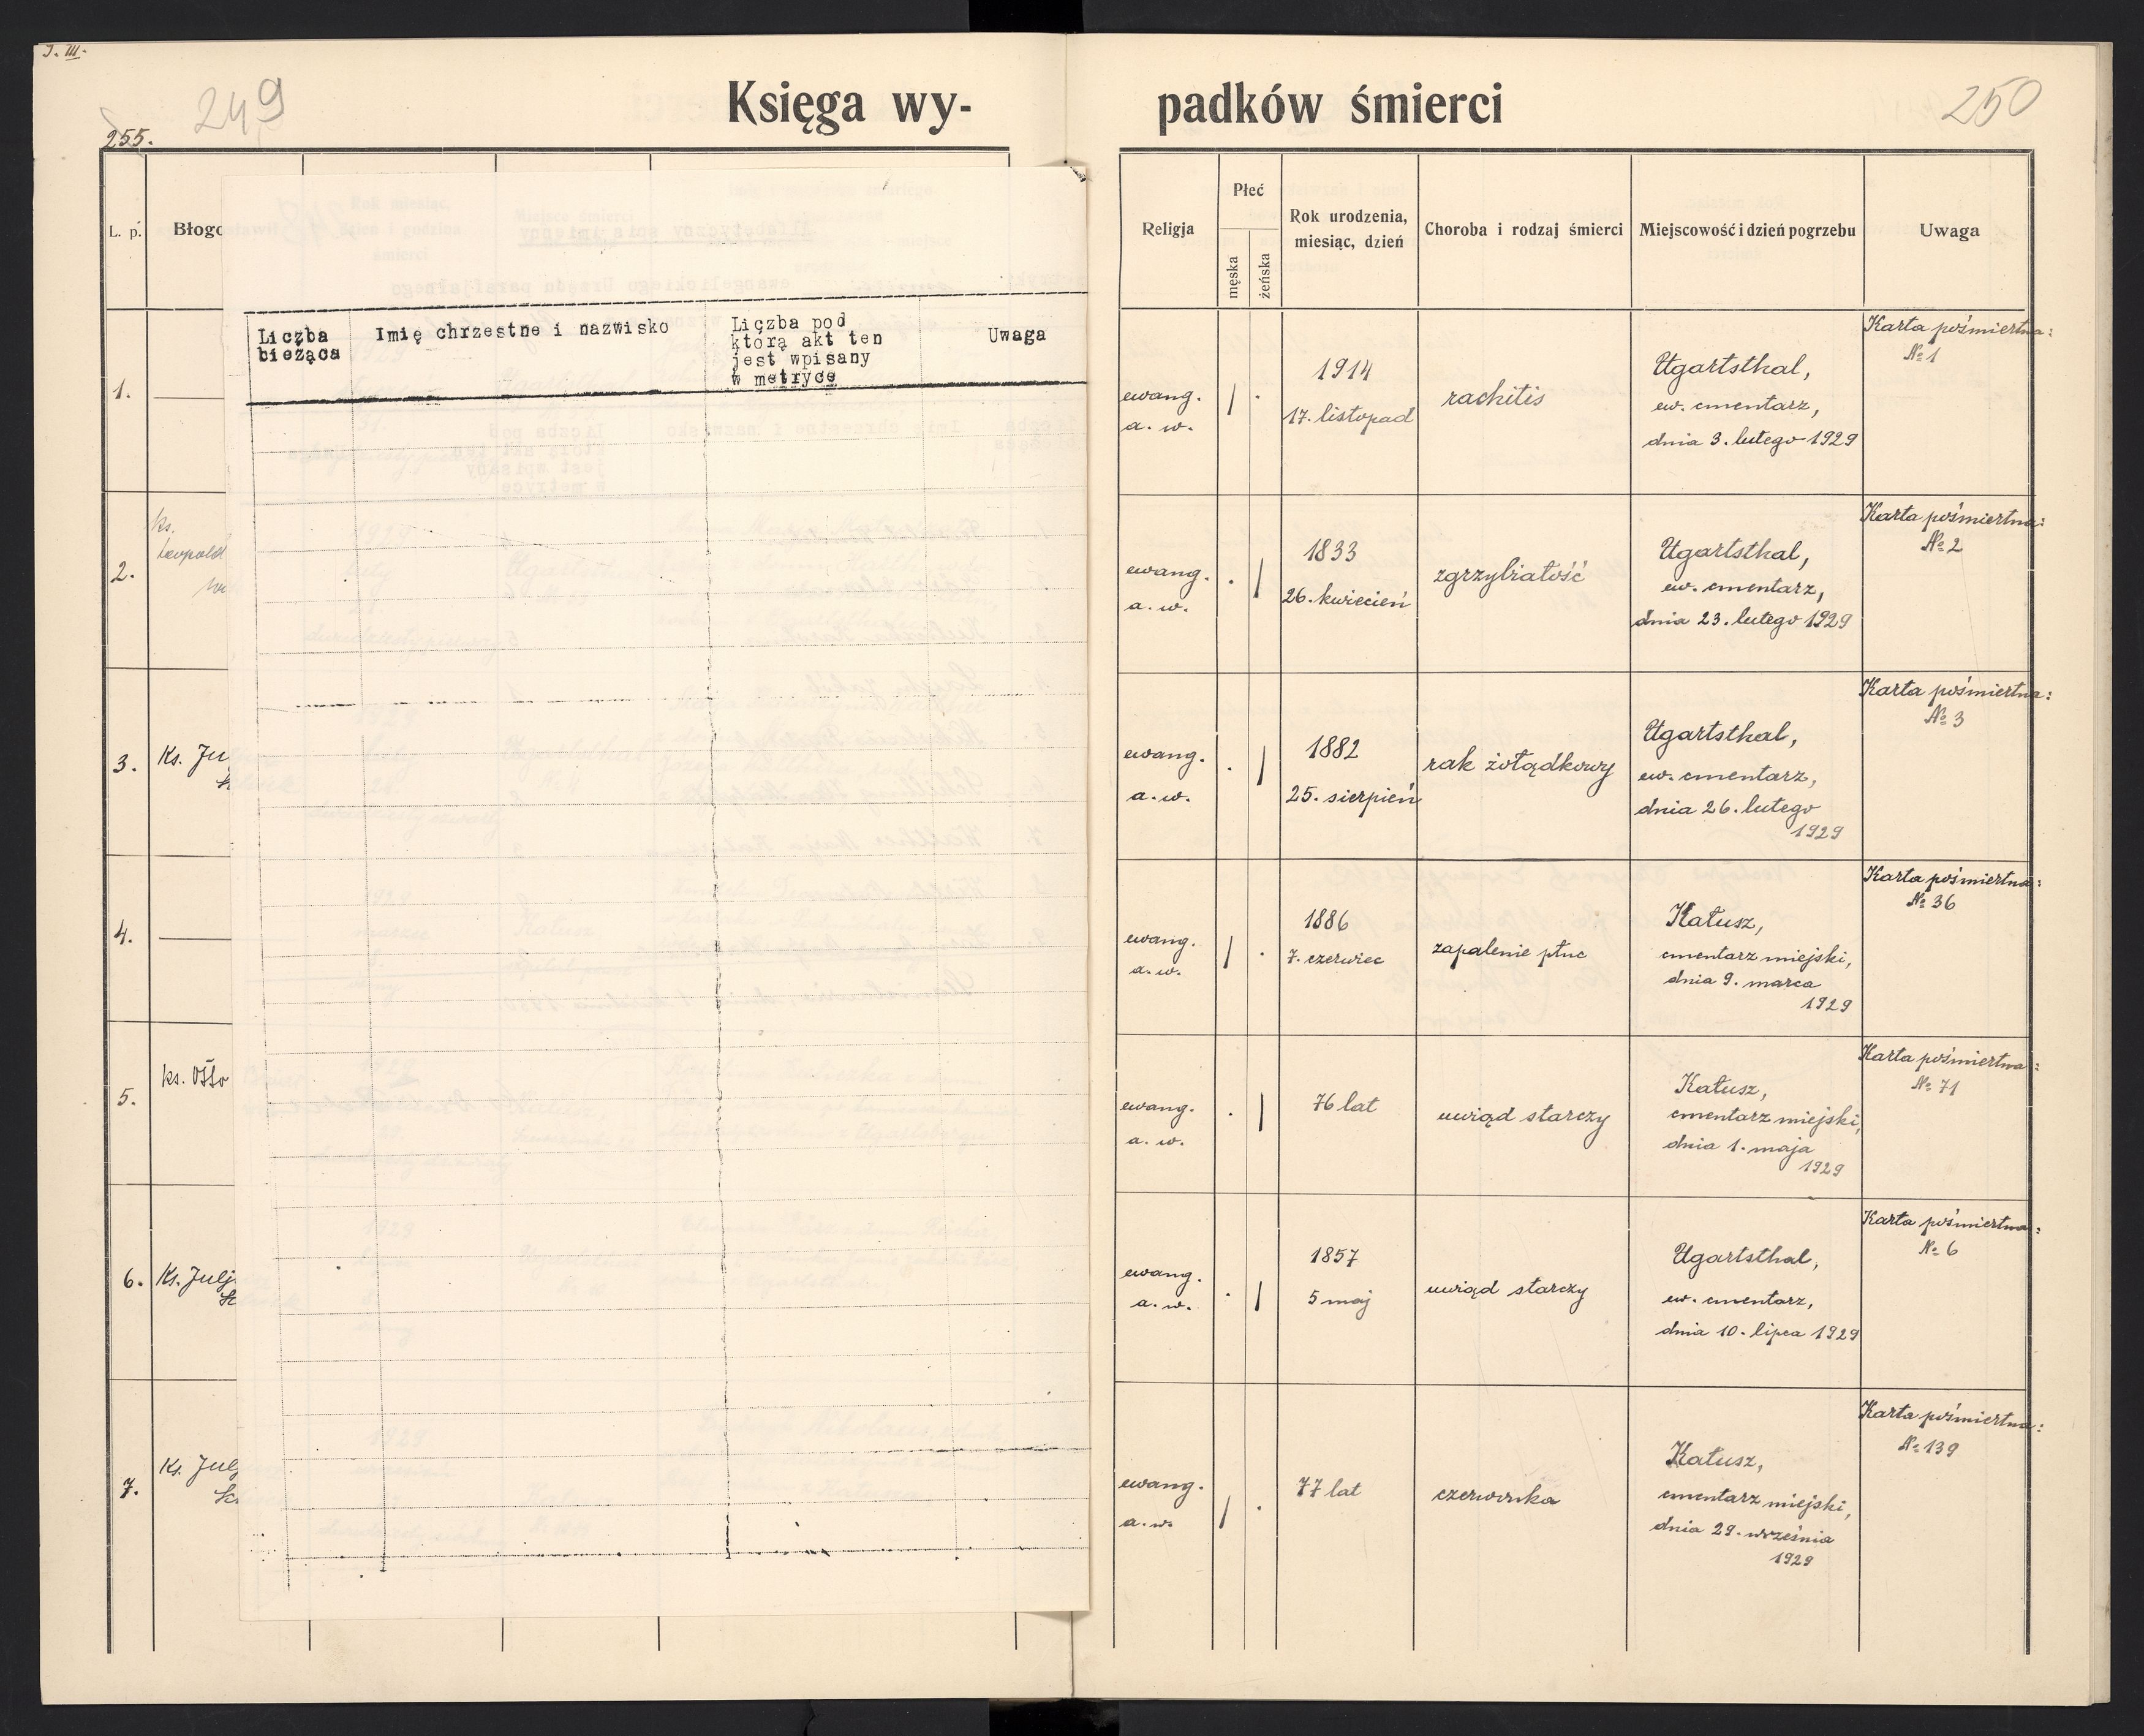 J. III.
249
255.
Księga wy-
padków śmierci
250
L. p.
Błogo
Liczba bieżąca
Imię chrzestne i nazwisko
Liczba pod
którą akt ten
jest wpisany
w metryce
Uwaga
1.
2.
ks.
Leopold
3.
Ks. Ju
4.
5.
ks. Otto
6.
Ks. Julj
7.
Ks. Julj
Religja
Płeć
męska
żeńska
Rok urodzenia,
miesiąc, dzień
Choroba i rodzaj śmierci
Miejscowość i dzień pogrzebu
Uwaga
ewang.
a. w.
1914
17. listopad
rachitis
Ugartsthal,
ew. cmentarz,
dnia 3. lutego 1929
Karta pośmiertna:
№ 1
ewang.
a. w.
1833
26. kwiecień
zgrzybiałość
Ugartsthal,
ew. cmentarz,
dnia 23. lutego 1929
Karta pośmiertna:
№ 2
ewang.
a. w.
1882
25. sierpień
rak żołądkowy
Ugartsthal,
ew. cmentarz,
dnia 26. lutego
1929
Karta pośmiertna:
№ 3
ewang.
a. w.
1886
7. czerwiec
zapalenie płuc
Kałusz,
cmentarz miejski,
dnia 9. marca
1929
Karta pośmiertna:
№ 36
ewang.
a. w.
76 lat
uwiąd starczy
Kałusz,
cmentarz miejski,
dnia 1. maja
1929
Karta pośmiertna:
№ 71
ewang.
a. w.
1857
5 maj
uwiąd starczy
Ugartsthal,
ew. cmentarz,
dnia 10. lipca 1929
Karta pośmiertna:
№ 6
ewang.
a. w.
77 lat
czerwonka
Kałusz,
cmentarz miejski,
dnia 29. września
1929
Karta pośmiertna:
№ 139